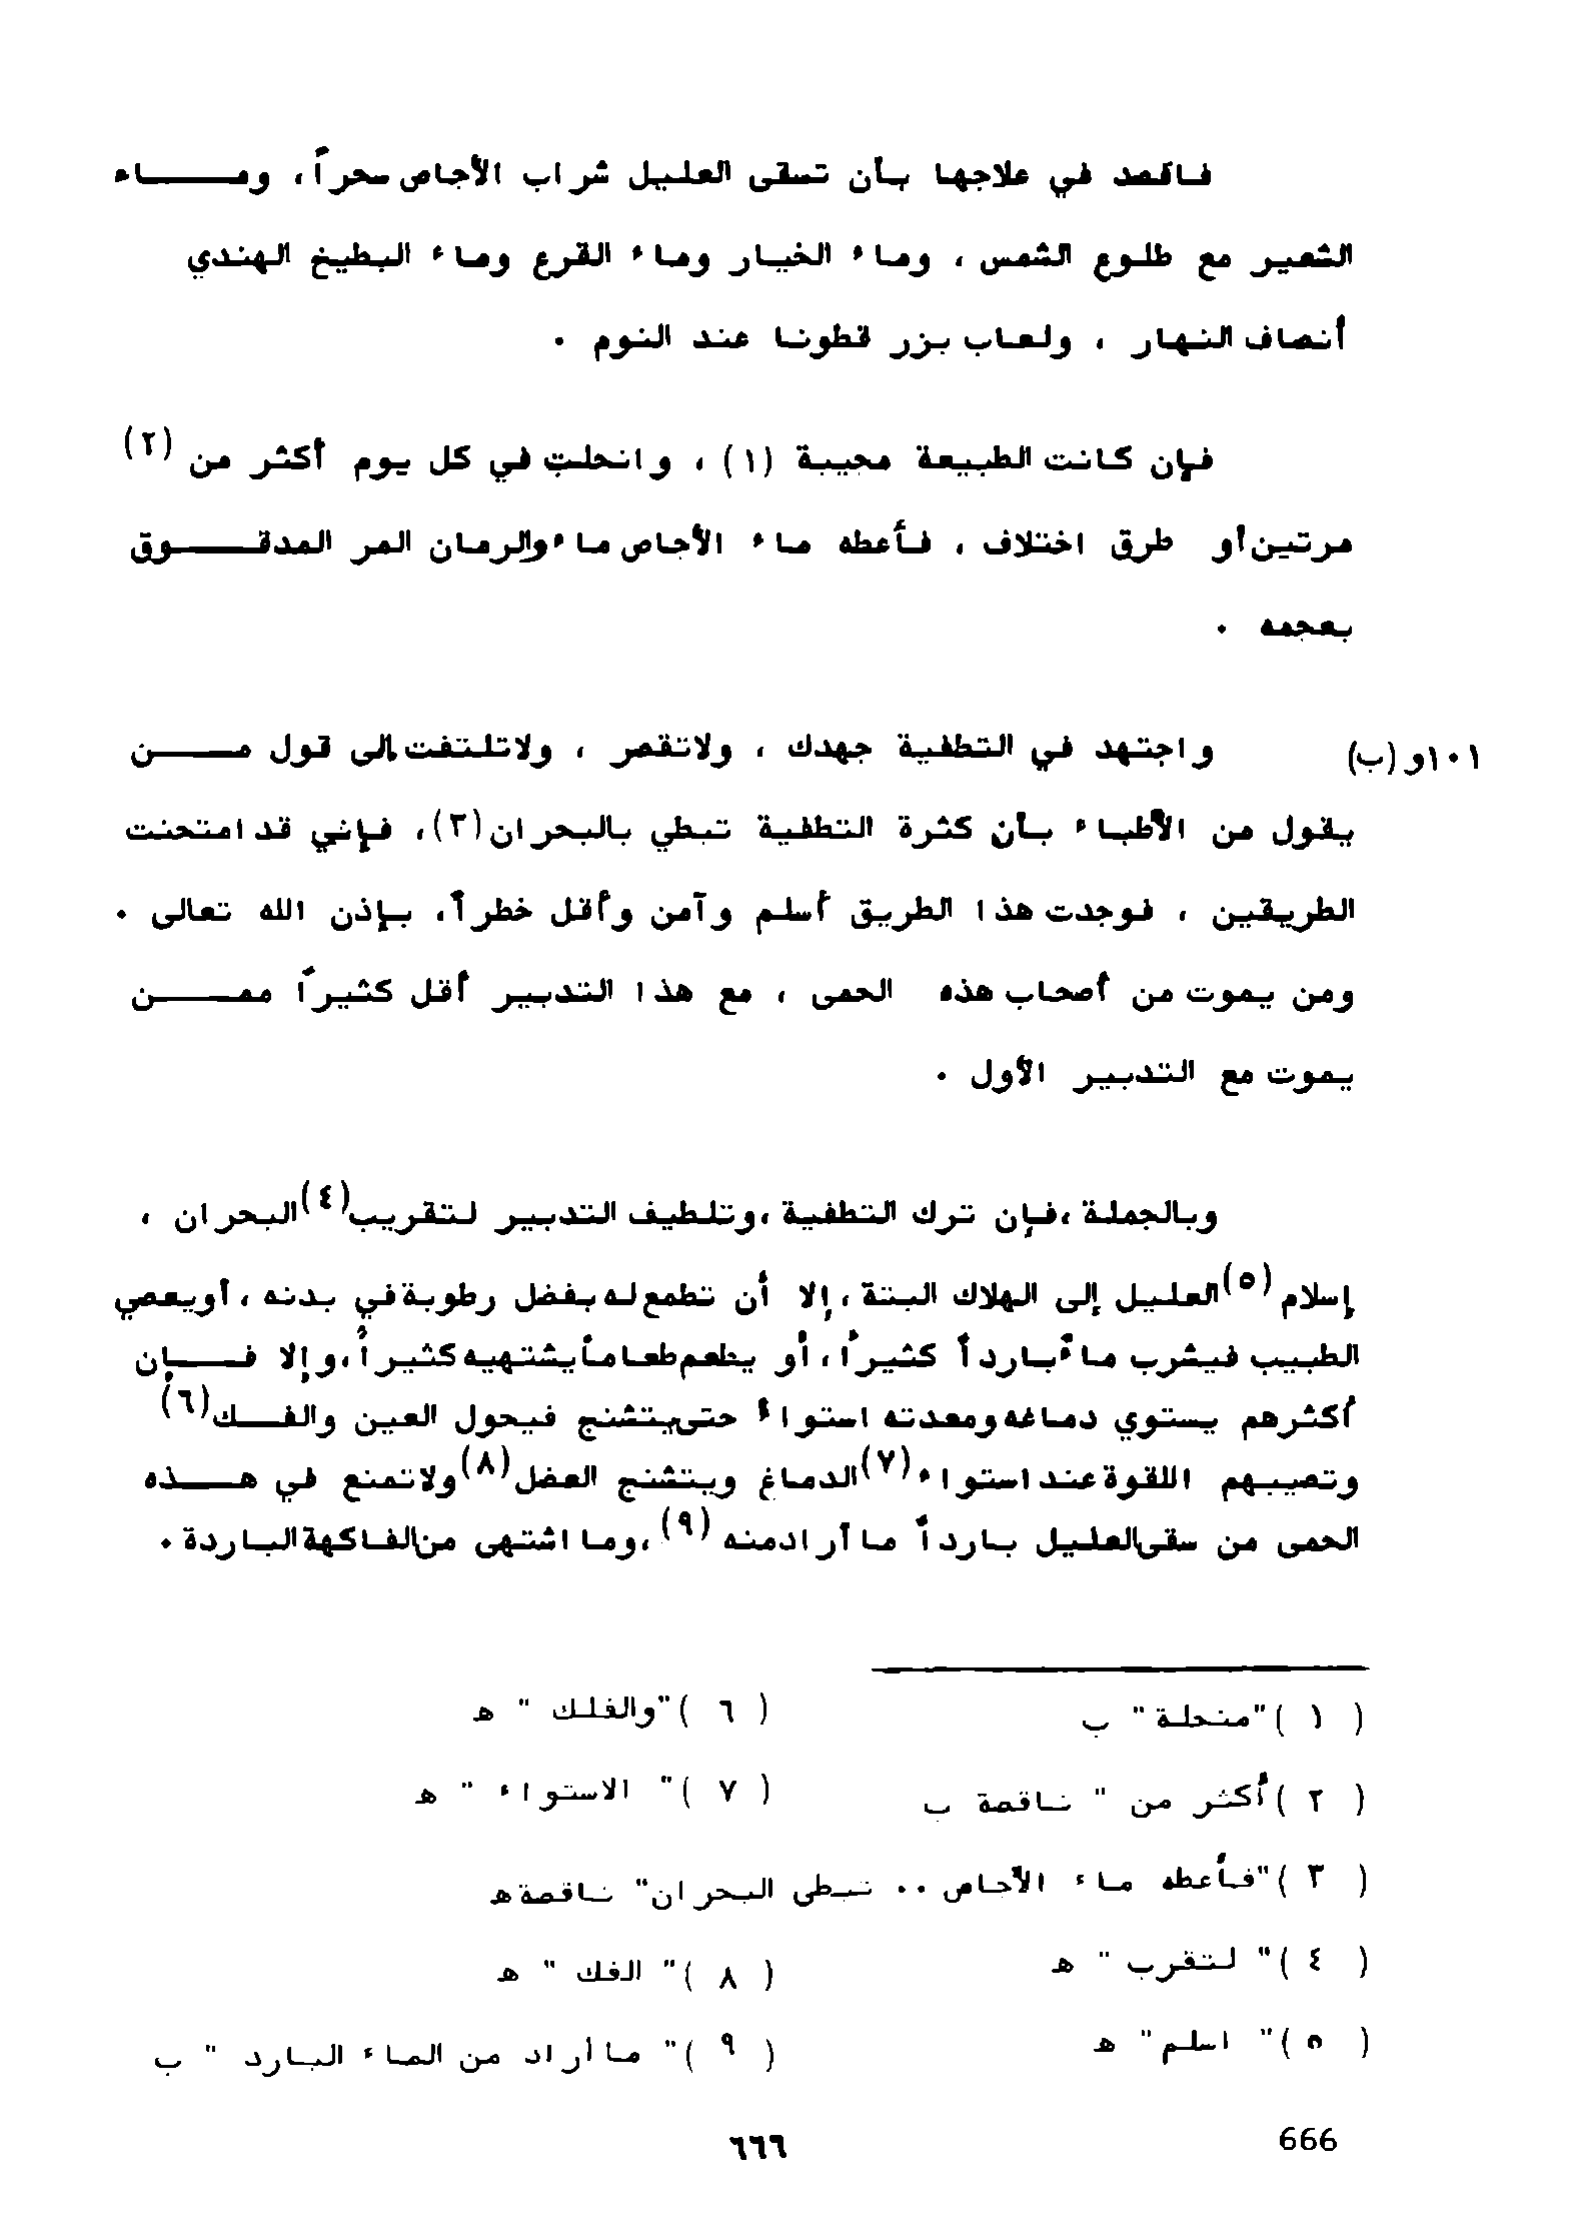 فاقصد في علاجها بأن تسقى العليل شراب الأجاص سحراً، ومـــاء
الشعير مع طلوع الشمس ، وماء الخيار وماء القرع وماء البطيخ الهندي
أنصاف النهار ، ولعاب بزر قطونا عند النوم .
فإن كانت الطبيعة مجيبة (١) ، وانحلت في كل يوم أكثر من (٢)
مرتين أو طرق اختلاف ، فأعطه ماء الأجاص ماء والرمان المر المدقـــوق
بعجمه .
١٠١و (ب) واجتهد في التطفية جهدك ، ولاتقصر ، ولاتلتفت إلى قول مـــن
يقول من الأطباء بأن كثرة التطفية تبطي بالبحران (٣)، فإني قد امتحنت
الطريقين ، فوجدت هذا الطريق أسلم وآمن وأقل خطراً، بإذن الله تعالى .
ومن يموت من أصحاب هذه الحمى ، مع هذا التدبير أقل كثيراً ممـــن
يموت مع التدبير الأول .
وبالجملة ،فإن ترك التطفية ،وتلطيف التدبير لتقريب (٤) البحران ،
إسلام (٥) العليل إلى الهلاك البتة ، إلا أن تطمع له بفضل رطوبة في بدنه ، أويعصي
الطبيب فيشرب ماءً بارداً كثيراً ، أو يطعم طعاماً يشتهيه كثيراً ،وإلا فـــإن
أكثرهم يستوي دماغه ومعدته استواءً حتى يتشنج فيحول العين والفـــك (٦)
وتصيبهم اللقوة عند استواء (٧) الدماغ ويتشنج العضل (٨) ولاتمنع في هـــذه
الحمى من سقي العليل بارداً ما أراد منه (٩) ،وما اشتهى من الفاكهة الباردة .
( ١ )"منحلة " ب
( ٢ )أكثر من " ناقصة ب
( ٣ )"فأعطه ماء الأجاص .. تبطي البحران" ناقصة ه
( ٤ )" لتقرب " ه
( ٥ )" اسلم" ه
( ٦ )"والفلك " ه
( ٧ )" الاستواء " ه
( ٨ )" الفك " ه
( ٩ )" ما أراد من الماء البارد " ب
٦٦٦
666